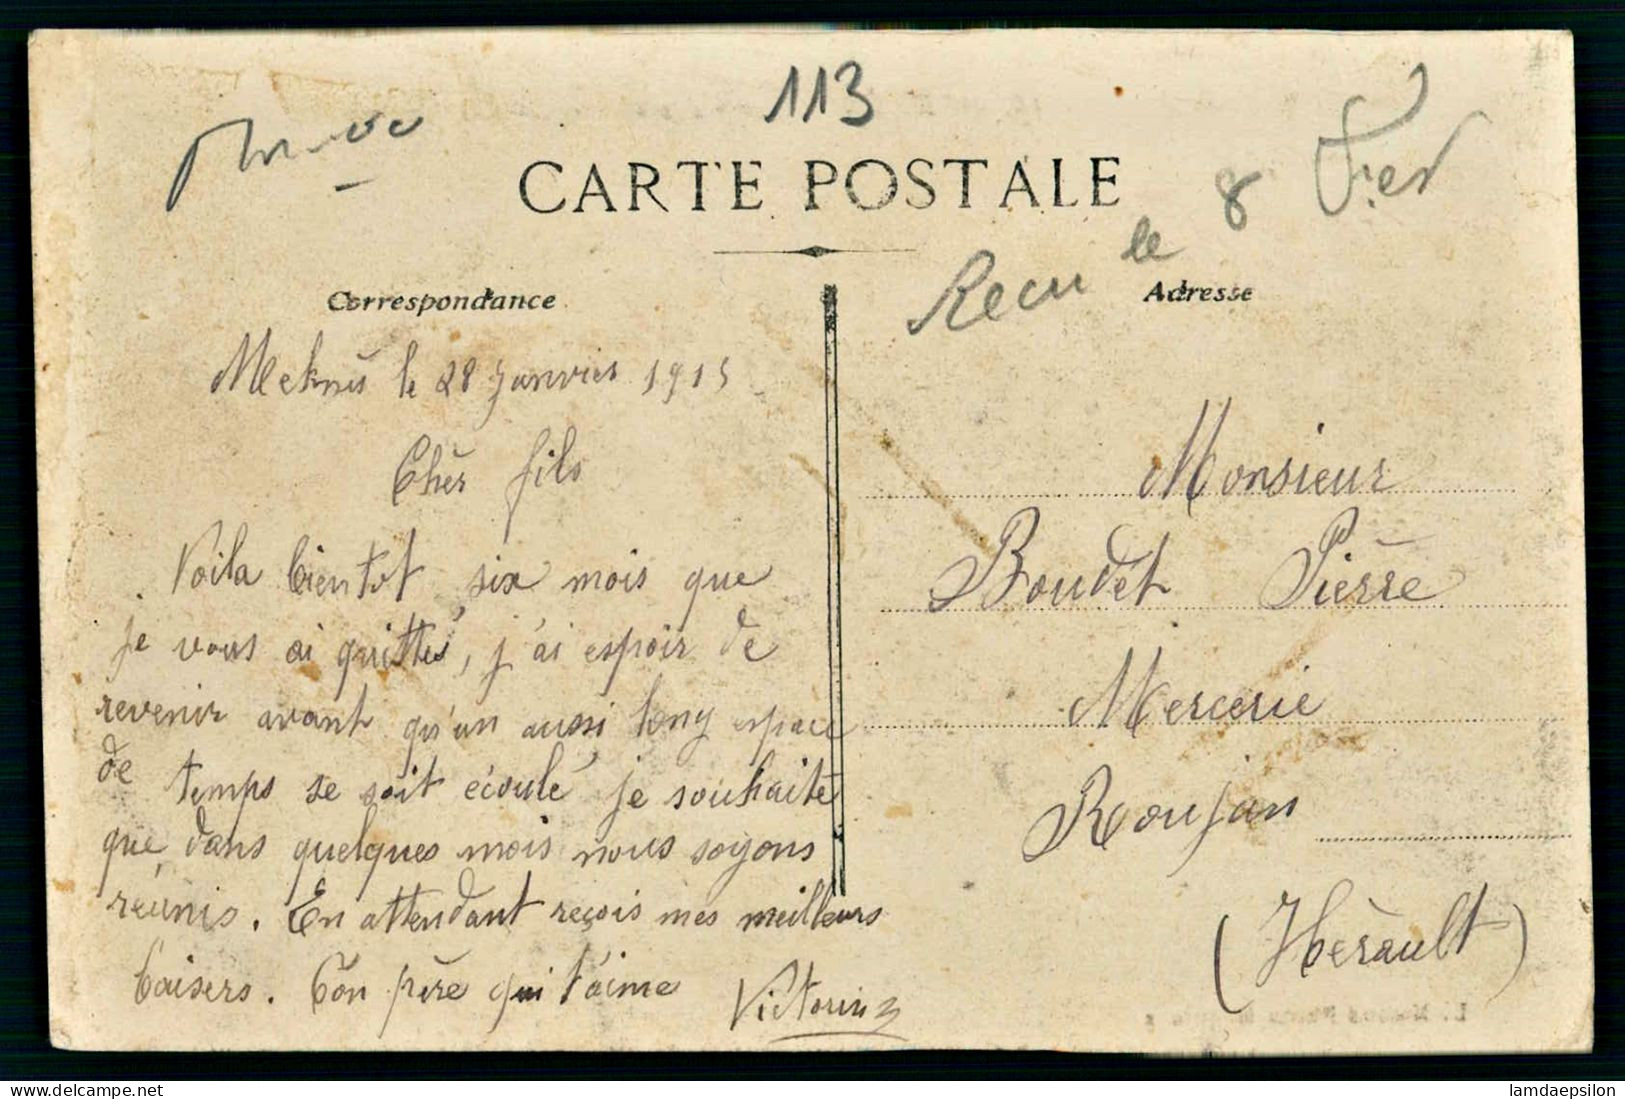 113
CARTE POSTALE
Recu le 8 Fier
Correspondance
Adresse
Meknès le 28 Janvier 1915
Chèr fils
Voila bientot six mois que
je vous ai quittés, j'ai espoir de
revenir avant qu'un aussi long espace
de temps se soit écoulé je souhaite
que dans quelques mois nous soyons
réunis. En attendant reçois mes meilleurs
baisers. Ton père qui t'aime
Victorin
Monsieur
Boudet Pièrre
Mercerie
Roujan
(Hérault)
delcampe.net
lamdaepsilon